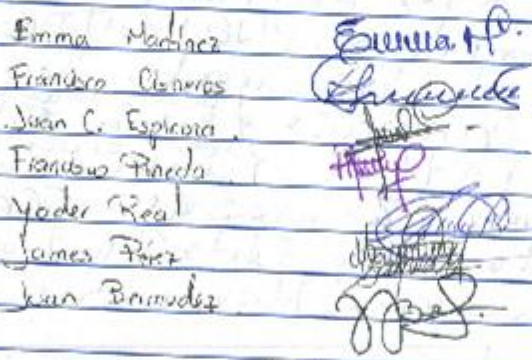 Emma Martínez Emma M.
Francisco Cisneros
Juan C. Espinoza.
Francisco Pineda
Yader Real
James Pérez
Juan Bermudez